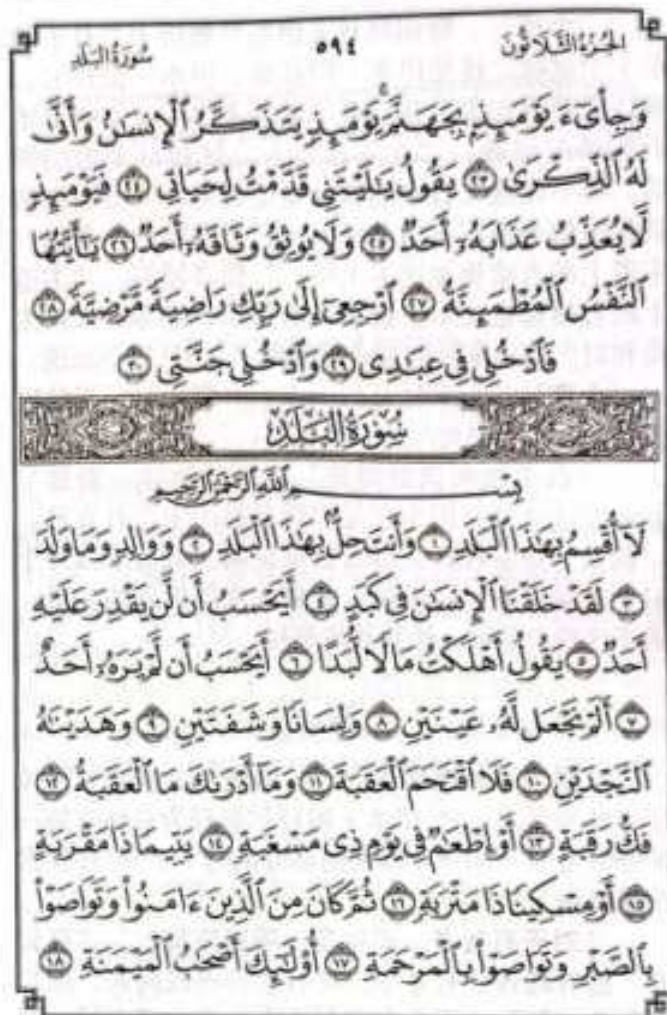 الجُزْءُ الثَّلَاثُونَ ٥٩٤ سُورَةُ البَلَدِ
وَجِا۟یٓءَ یَوۡمَىِٕذِۭ بِجَهَنَّمَۚ یَوۡمَىِٕذࣲ یَتَذَكَّرُ ٱلۡإِنسَـٰنُ وَأَنَّىٰ
لَهُ ٱلذِّكۡرَىٰ ٢٣ یَقُولُ یَـٰلَیۡتَنِی قَدَّمۡتُ لِحَیَاتِی ٢٤ فَیَوۡمَىِٕذࣲ
لَّا یُعَذِّبُ عَذَابَهُۥۤ أَحَدࣱ ٢٥ وَلَا یُوثِقُ وَثَاقَهُۥۤ أَحَدࣱ ٢٦ یَـٰۤأَیَّتُهَا
ٱلنَّفۡسُ ٱلۡمُطۡمَىِٕنَّةُ ٢٧ ٱرۡجِعِیۤ إِلَىٰ رَبِّكِ رَاضِیَةࣰ مَّرۡضِیَّةࣰ ٢٨
فَٱدۡخُلِی فِی عِبَـٰدِی ٢٩ وَٱدۡخُلِی جَنَّتِی ٣٠
سُورَةُ البَلَدِ
بِسۡمِ ٱللَّهِ ٱلرَّحۡمَـٰنِ ٱلرَّحِیمِ
لَاۤ أُقۡسِمُ بِهَـٰذَا ٱلۡبَلَدِ ١ وَأَنتَ حِلُّۢ بِهَـٰذَا ٱلۡبَلَدِ ٢ وَوَالِدࣲ وَمَا وَلَدَ
٣ لَقَدۡ خَلَقۡنَا ٱلۡإِنسَـٰنَ فِی كَبَدٍ ٤ أَیَحۡسَبُ أَن لَّن یَقۡدِرَ عَلَیۡهِ
أَحَدࣱ ٥ یَقُولُ أَهۡلَكۡتُ مَالࣰا لُّبَدًا ٦ أَیَحۡسَبُ أَن لَّمۡ یَرَهُۥۤ أَحَدٌ
٧ أَلَمۡ نَجۡعَل لَّهُۥ عَیۡنَیۡنِ ٨ وَلِسَانࣰا وَشَفَتَیۡنِ ٩ وَهَدَیۡنَـٰهُ
ٱلنَّجۡدَیۡنِ ١٠ فَلَا ٱقۡتَحَمَ ٱلۡعَقَبَةَ ١١ وَمَاۤ أَدۡرَىٰكَ مَا ٱلۡعَقَبَةُ ١٢
فَكُّ رَقَبَةٍ ١٣ أَوۡ إِطۡعَـٰمࣱ فِی یَوۡمࣲ ذِی مَسۡغَبَةࣲ ١٤ یَتِیمࣰا ذَا مَقۡرَبَةٍ
١٥ أَوۡ مِسۡكِینࣰا ذَا مَتۡرَبَةࣲ ١٦ ثُمَّ كَانَ مِنَ ٱلَّذِینَ ءَامَنُوا۟ وَتَوَاصَوۡا۟
بِٱلصَّبۡرِ وَتَوَاصَوۡا۟ بِٱلۡمَرۡحَمَةِ ١٧ أُو۟لَـٰۤىِٕكَ أَصۡحَـٰبُ ٱلۡمَیۡمَنَةِ ١٨